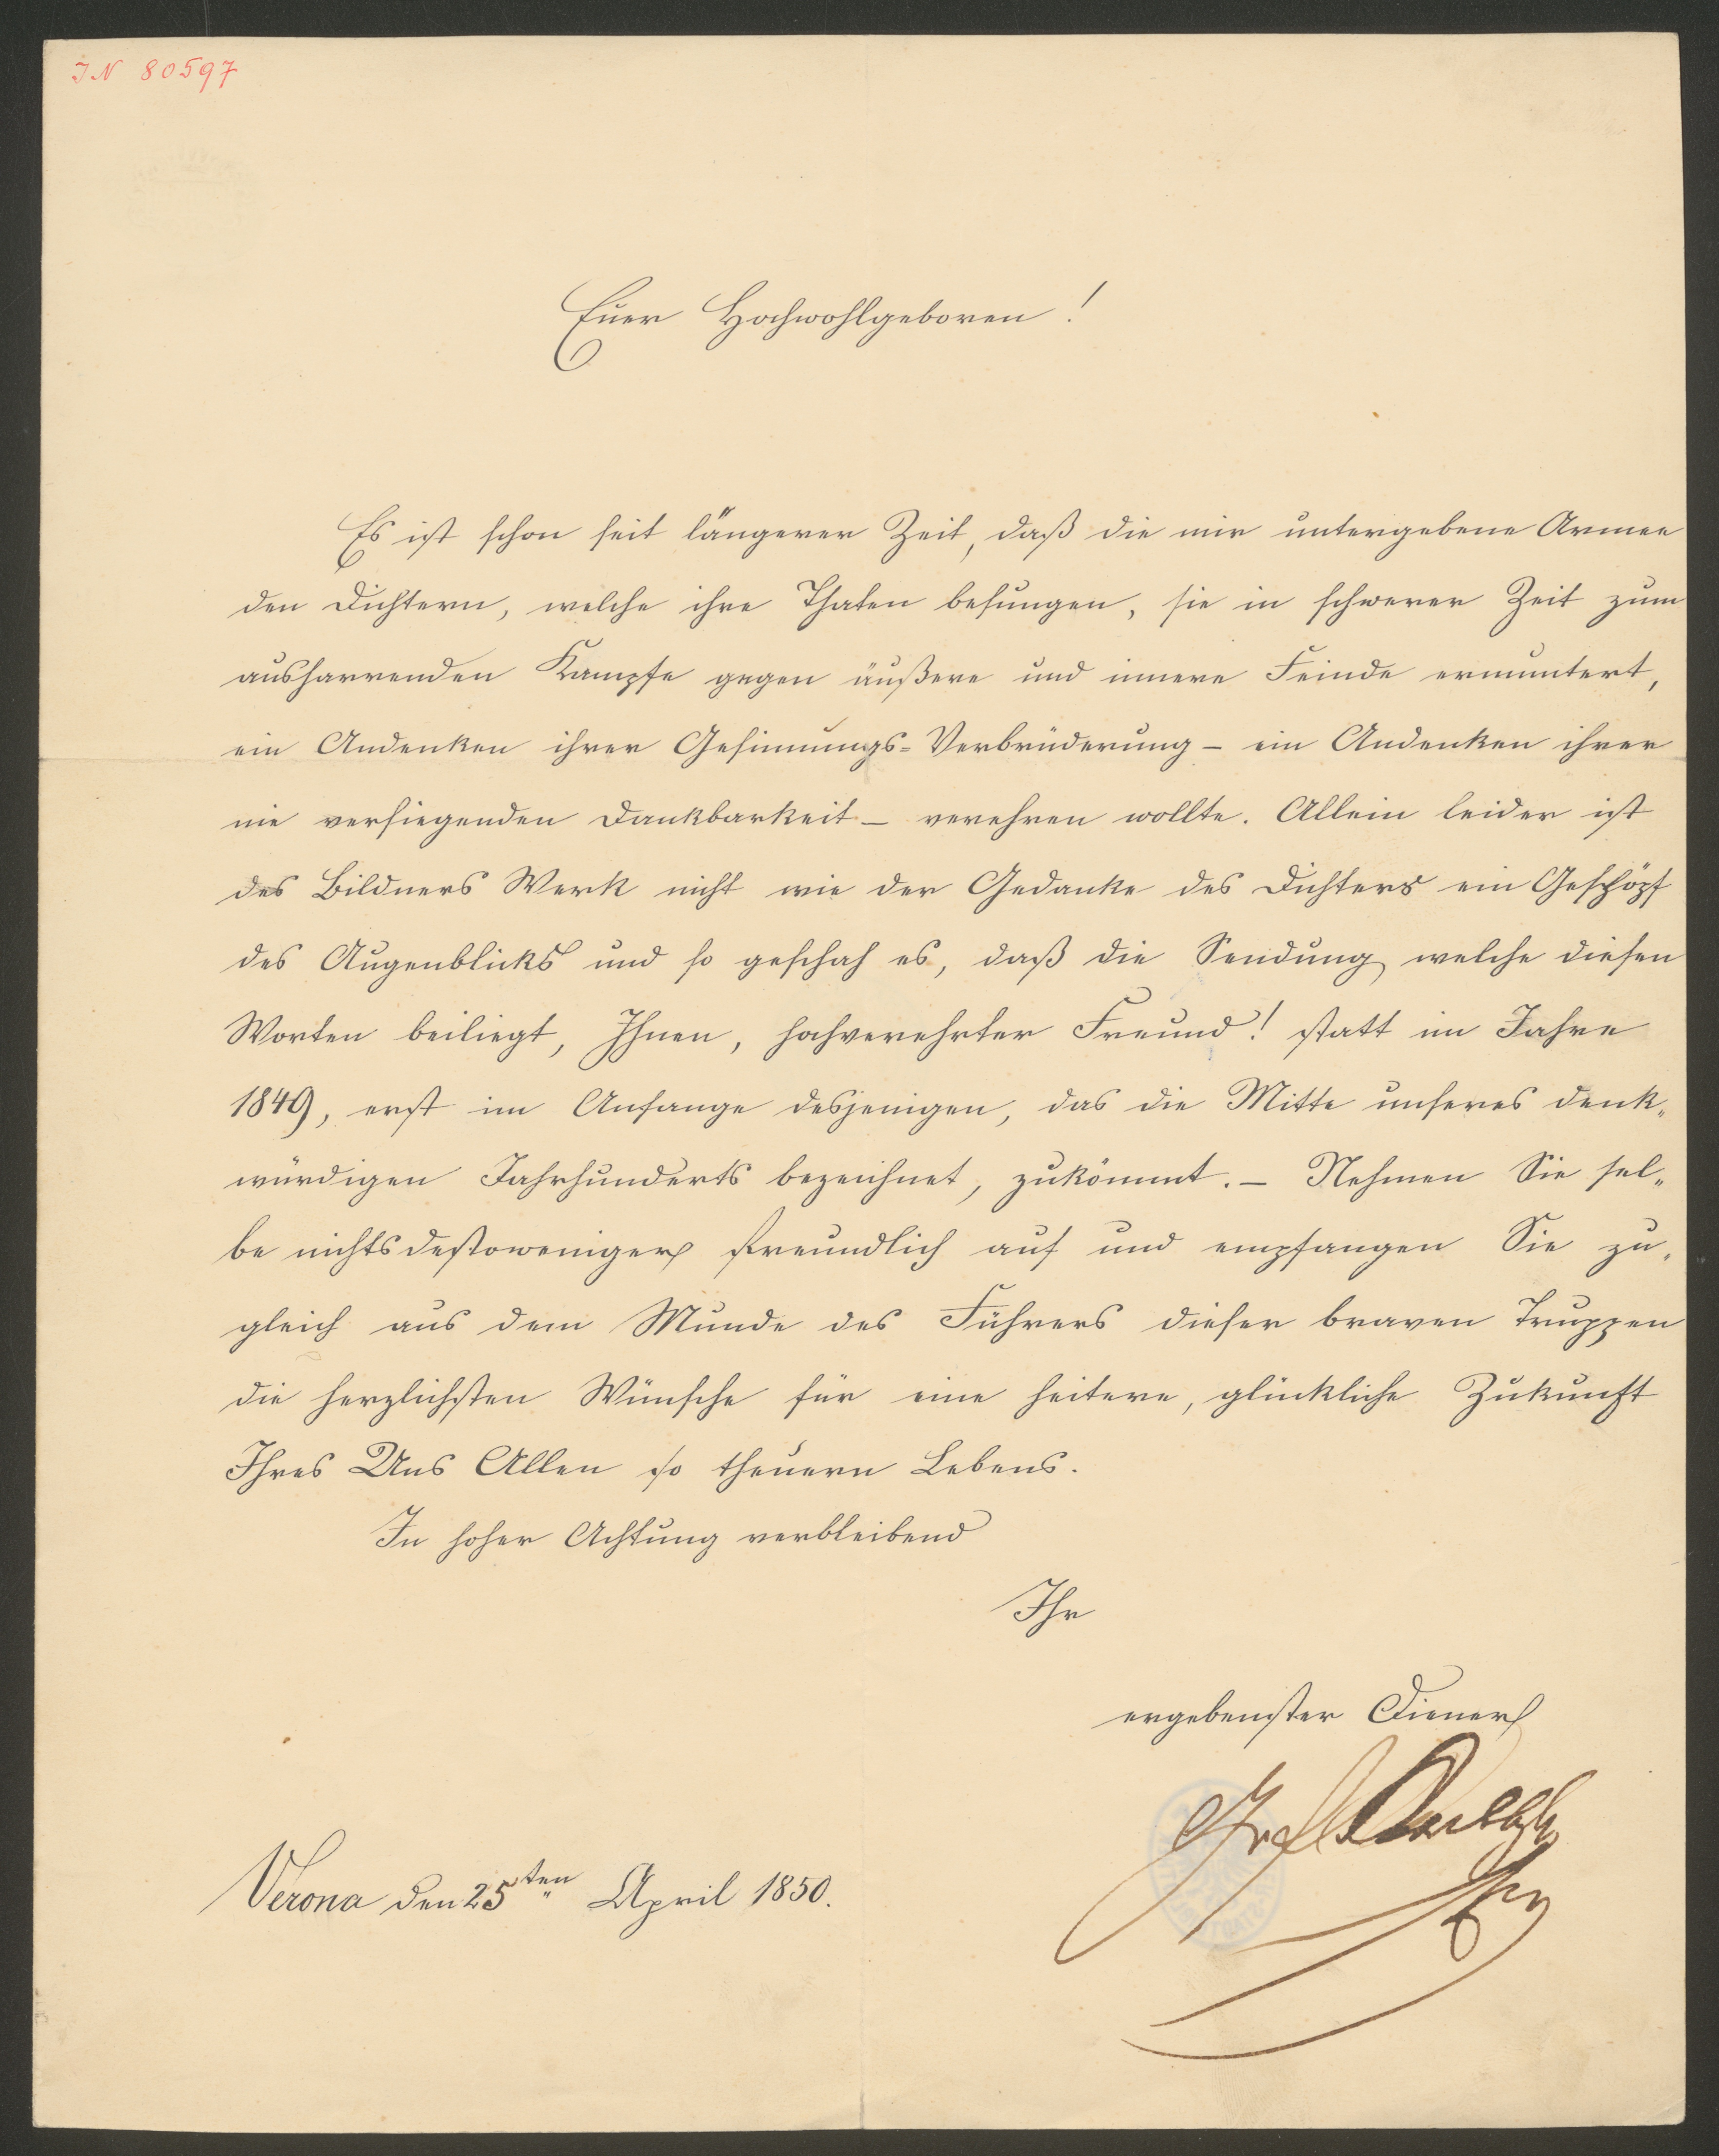 JN 80597
Euer Hochwohlgeboren!
Es ist schon seit längerer Zeit, daß die mir untergebene Armee
den Dichtern, welche ihre Thaten besungen, sie in schwerer Zeit zum
ausharrenden Kampfe gegen äußere und innere Feinde ermuntert,
ein Andenken ihrer Gesinnungs-Verbrüderung – ein Andenken ihrer
nie versiegenden Dankbarkeit – verehren wollte. Allein leider ist
des Bildners Werk nicht wie der Gedanke des Dichters ein Geschöpf
des Augenblicks und so geschah es, daß die Sendung welche diesen
Worten beiliegt, Ihnen, hochverehrter Freund! statt im Jahre
1849, erst im Anfange desjenigen, das die Mitte unseres denk-
würdigen Jahrhunderts bezeichnet, zukömmt. – Nehmen Sie sel-
be nichtsdestoweniger freundlich auf und empfangen Sie zu-
gleich aus dem Munde des Führers dieser braven Truppen
die herzlichsten Wünsche für eine heitere, glückliche Zukunft
Ihres Uns Allen so theuern Lebens.
In hoher Achtung verbleibend
Ihr
ergebenster Diener
Verona den 25ten April 1850.